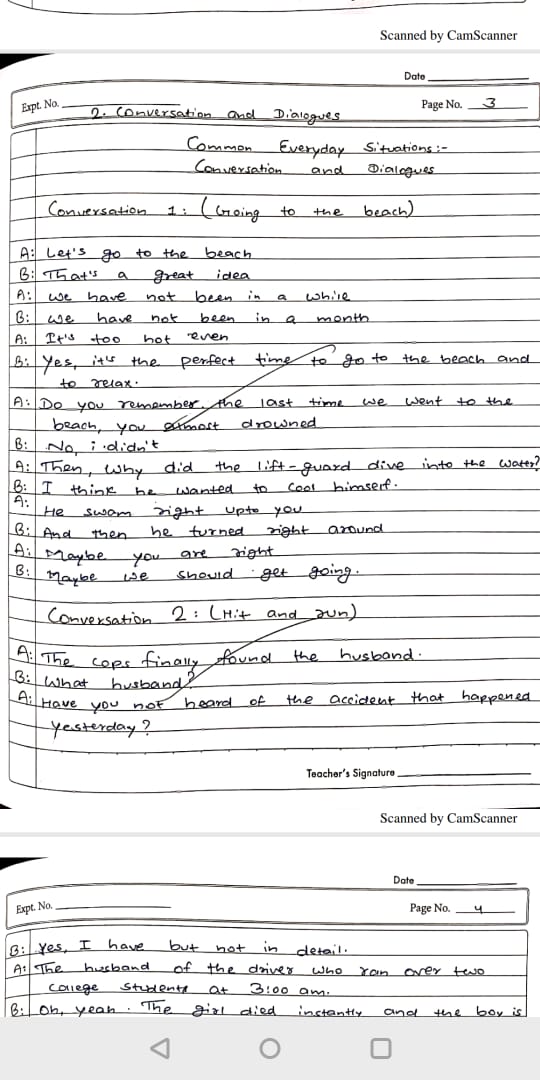 Scanned by CamScanner
Date
Expt. No.
Page No. 3
2. Conversation and Dialogues
Common Everyday Situations:-
Conversation and Dialogues
Conversation 1: (Going to the beach)
A: Let's go to the beach
B: That's a great idea
A: we have not been in a while
B: we have not been in a month
A: It's too hot even
B: Yes, it's the perfect time to go to the beach and
to relax.
A: Do you remember, the last time we went to the
beach, you almost drowned
B: No, i didn't
A: Then, why did the lift-guard dive into the water?
B: I think he wanted to cool himserf.
A: He swam right upto you
B: And then he turned right around
A: Maybe you are right
B: Maybe we should get going.
Conversation 2: (Hit and run)
A: The cops finally found the husband.
B: What husband?
A: Have you not heard of the accident that happened
yesterday?
Teacher's Signature
Scanned by CamScanner
Date
Expt. No.
Page No. 4
B: Yes, I have but not in detail.
A: The husband of the driver who ran over two
College students at 3:00 am.
B: Oh, yeah. The girl died instantly and the boy is